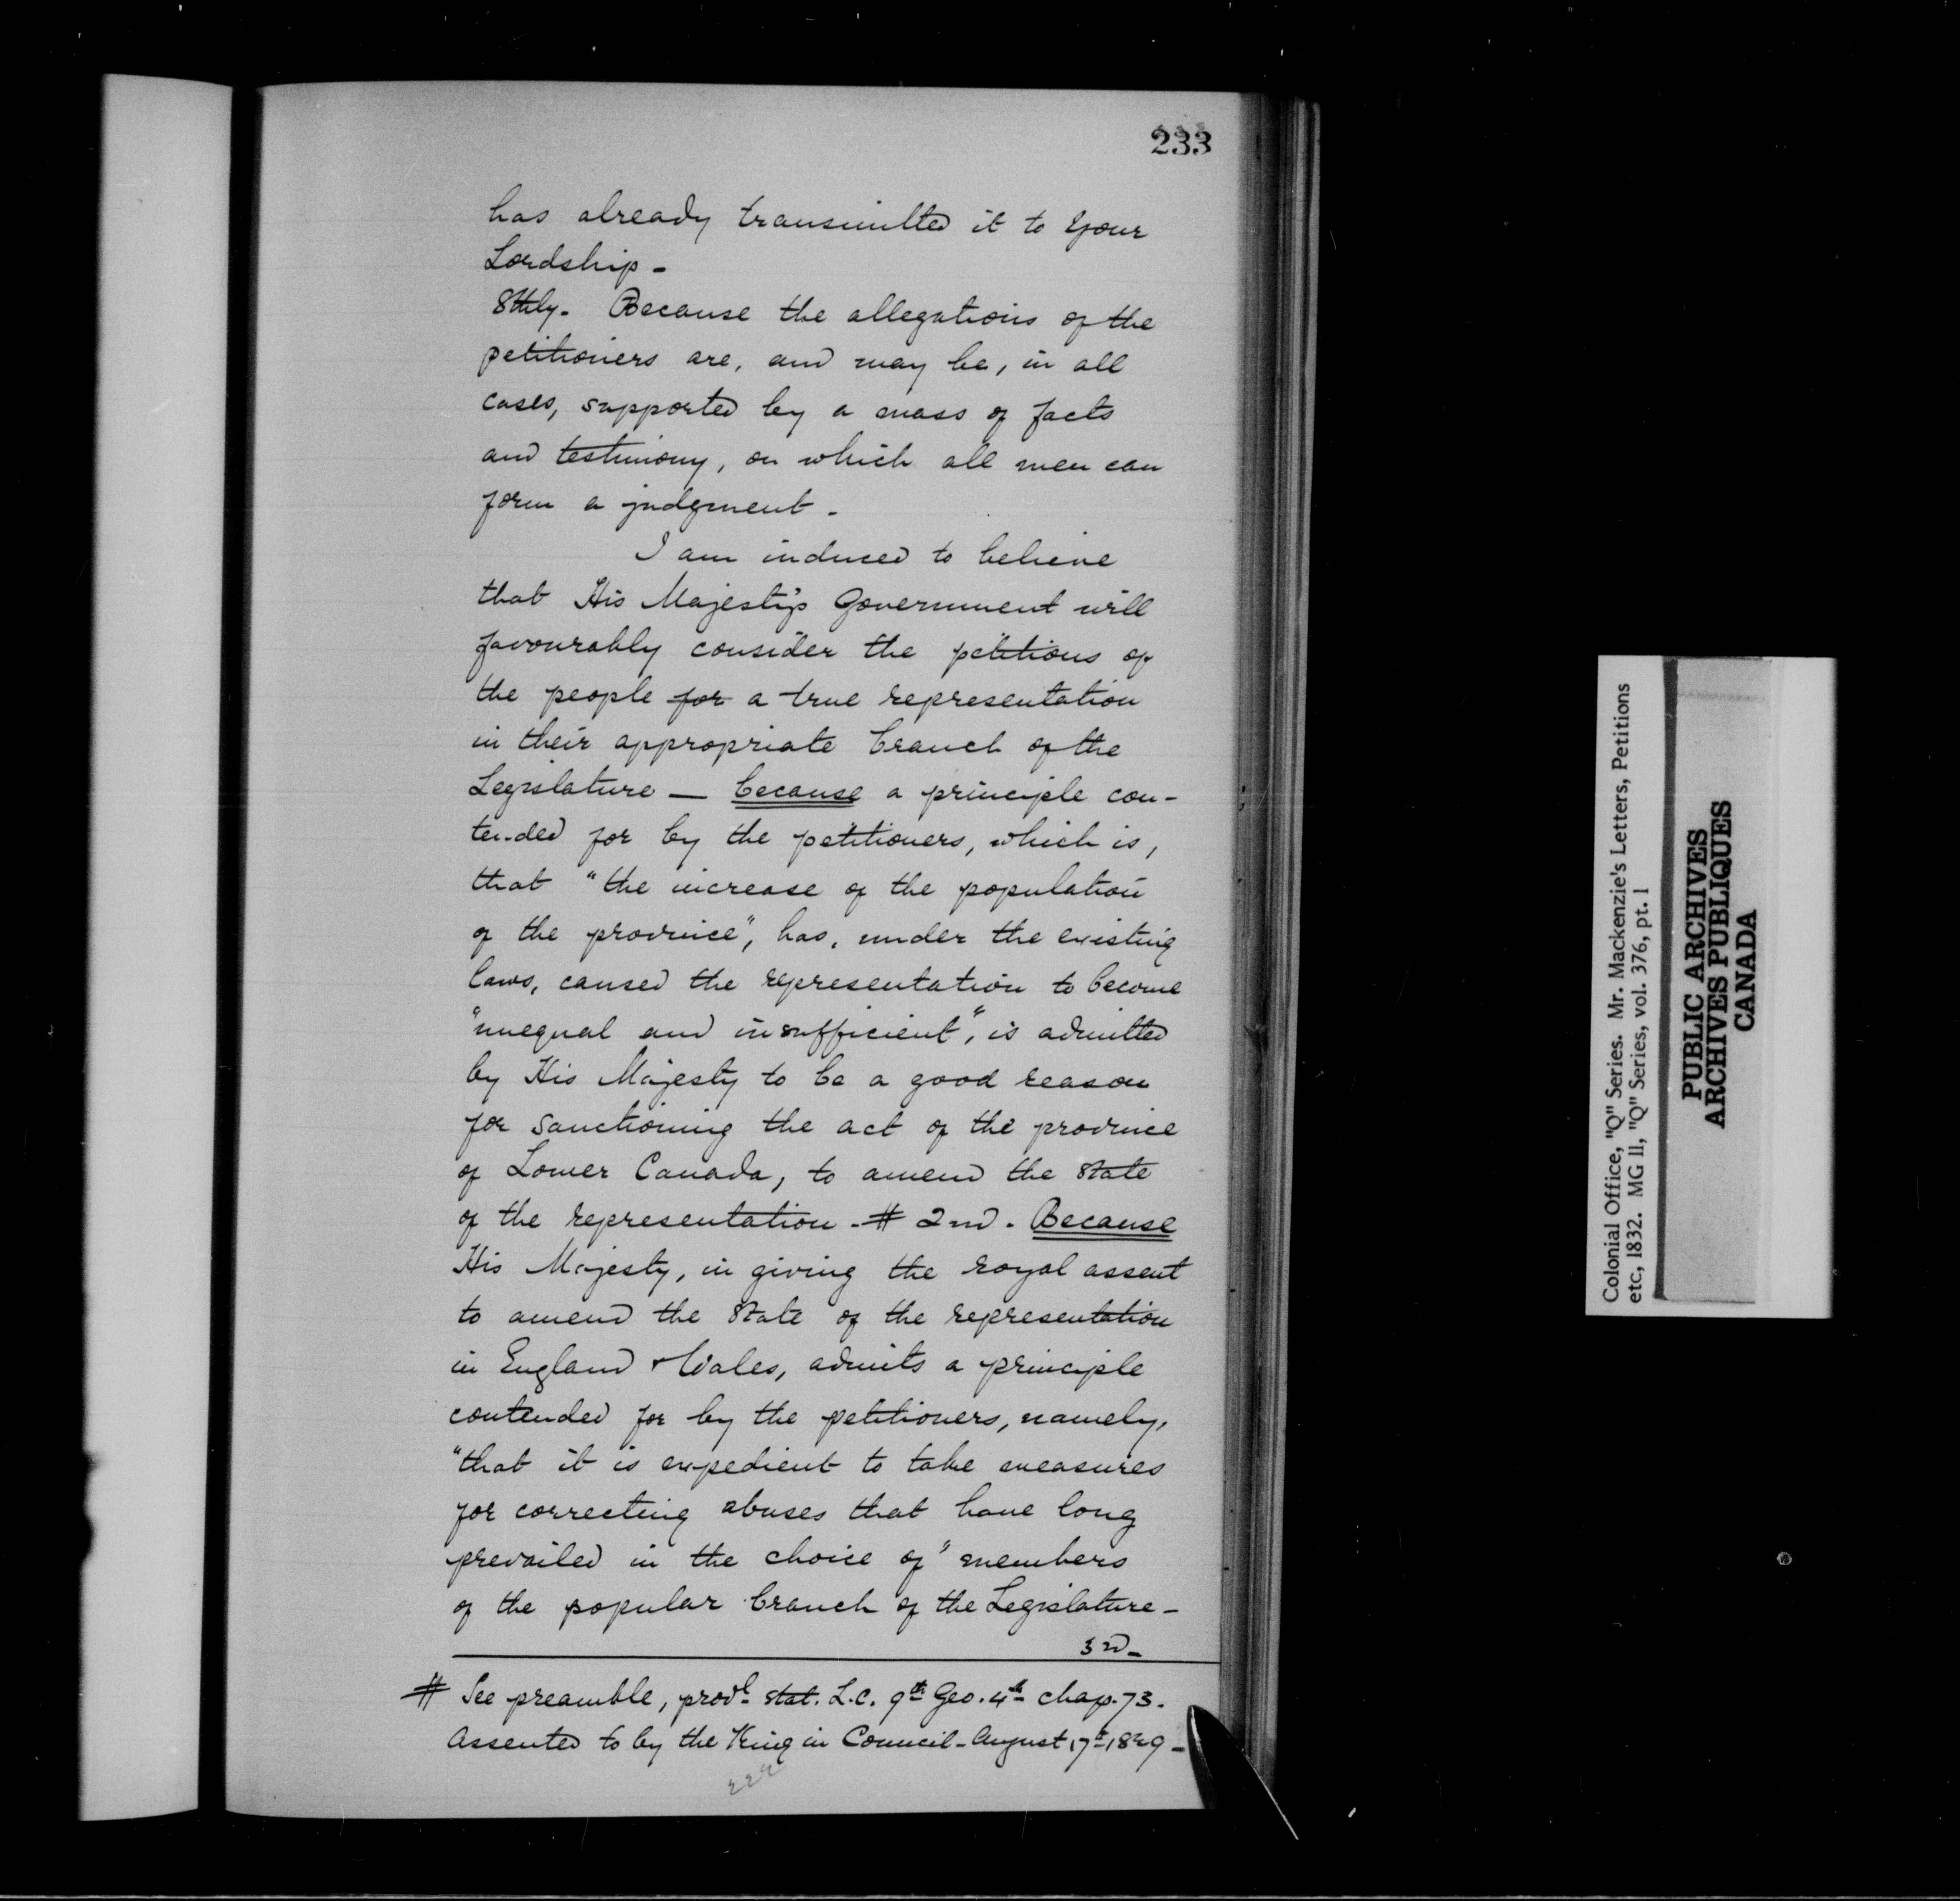 233
has already transmitted it to Your
Lordship -
8thly. Because the allegations of the
petitioners are, and may be, in all
cases, supported by a mass of facts
and testimony, on which all men can
form a judgment -
I am induced to believe
that His Majesty's Government will
favourably consider the petitions of
the people for a true representation
in their appropriate branch of the
Legislature — because a principle con-
tended for by the petitioners, which is,
that "the increase of the population
of the province", has, under the existing
laws, caused the representation to become
"unequal and insufficient", is admitted
by His Majesty to be a good reason
for sanctioning the act of the province
of Lower Canada, to amend the state
of the representation - # 2nd. Because
His Majesty, in giving the royal assent
to amend the state of the representation
in England & Wales, admits a principle
contended for by the petitioners, namely,
"that it is expedient to take measures
for correcting abuses that have long
prevailed in the choice of" members
of the popular branch of the Legislature -
3rd -
# See preamble, provl. stat. L.C. 9th Geo. 4th chap. 73.
Assented to by the King in Council - August 17th 1829 -
Colonial Office, "Q" Series. Mr. Mackenzie's Letters, Petitions
etc, 1832. MG 11, "Q" Series, vol. 376, pt. 1
PUBLIC ARCHIVES
ARCHIVES PUBLIQUES
CANADA